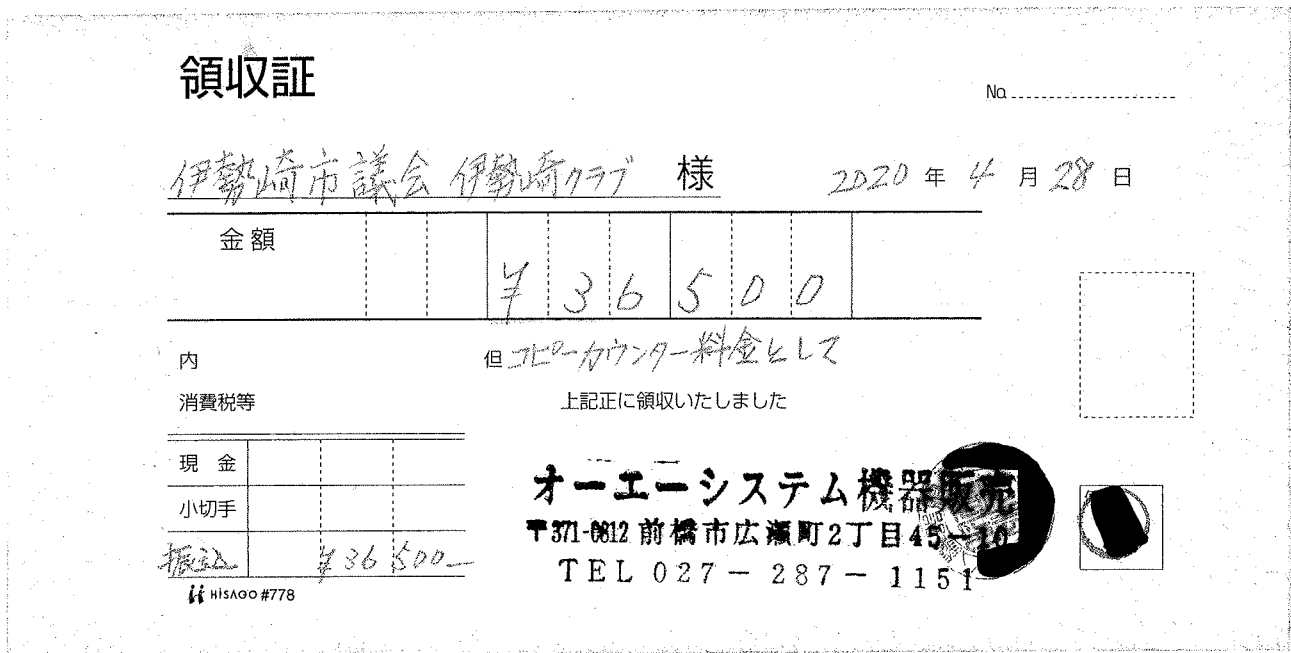 領収証
No.
伊勢崎市議会 伊勢崎クラブ 様
2020 年 4 月 28 日
金額
¥36500
内
但 コピーカウンター料金として
消費税等
上記正に領収いたしました
現 金
小切手
振込 ¥36500-
オーエーシステム機器販売
〒371-0812 前橋市広瀬町2丁目45-10
TEL 027-287-1151
HISAGO #778